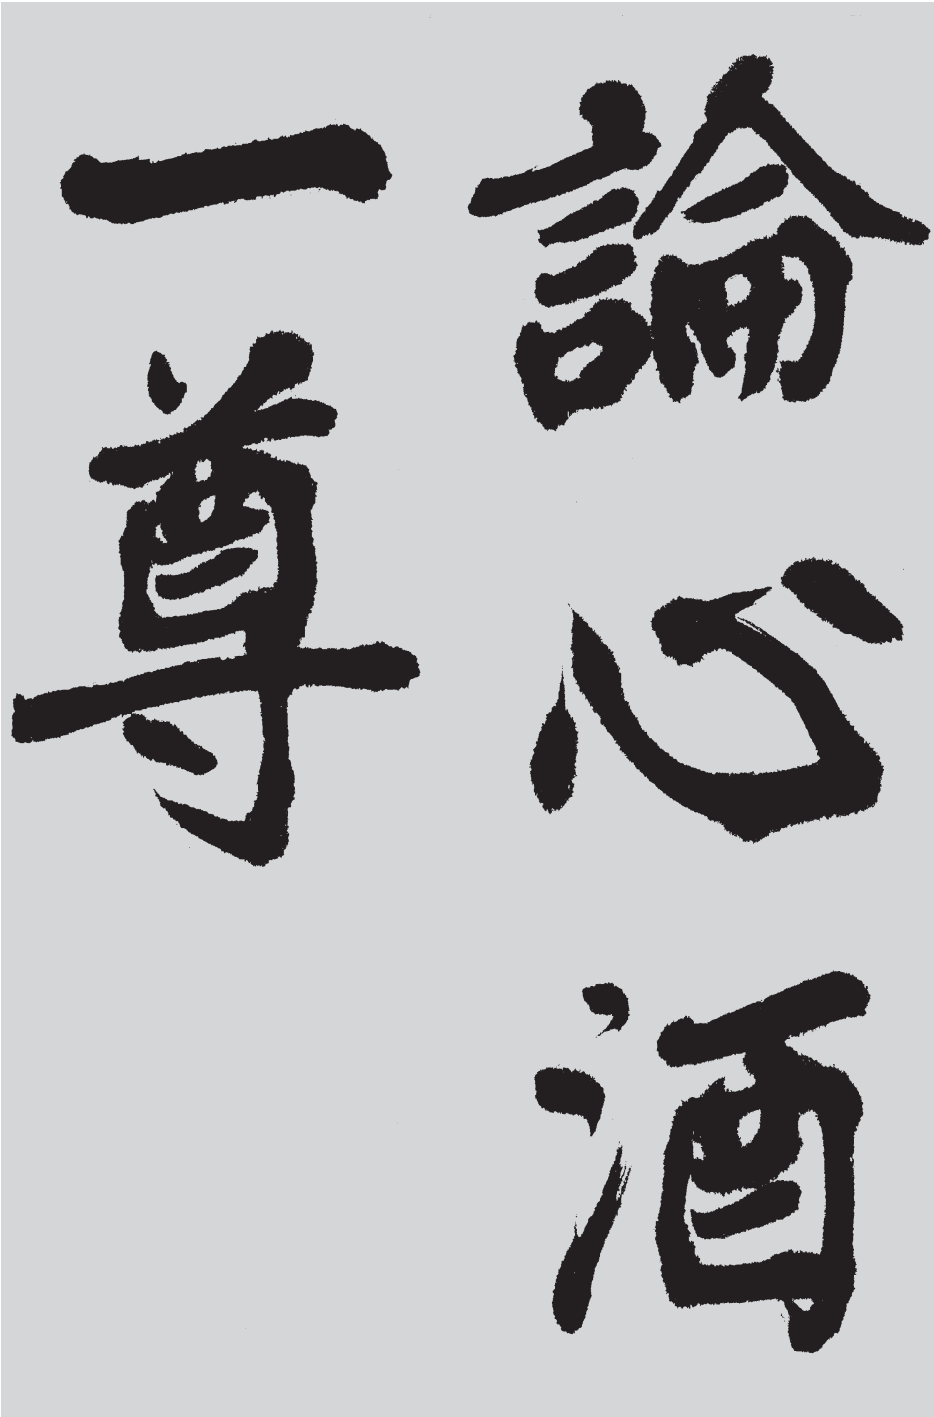 論心酒
一尊